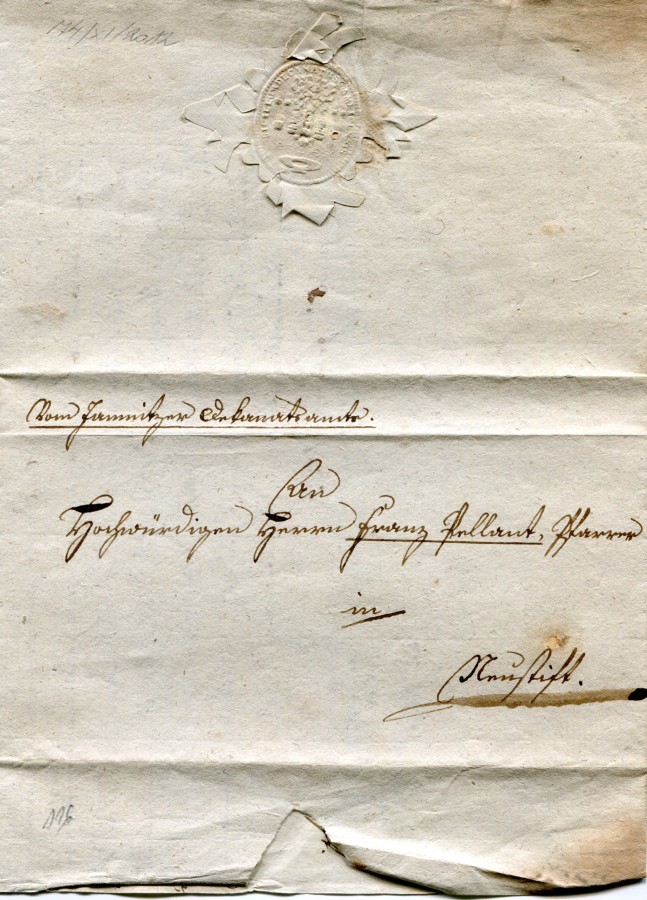 Vom Jamnitzer Dekanatsamte.
An
Hochwürdigen Herrn Franz Pellant, Pfarrer
in
Neustift.